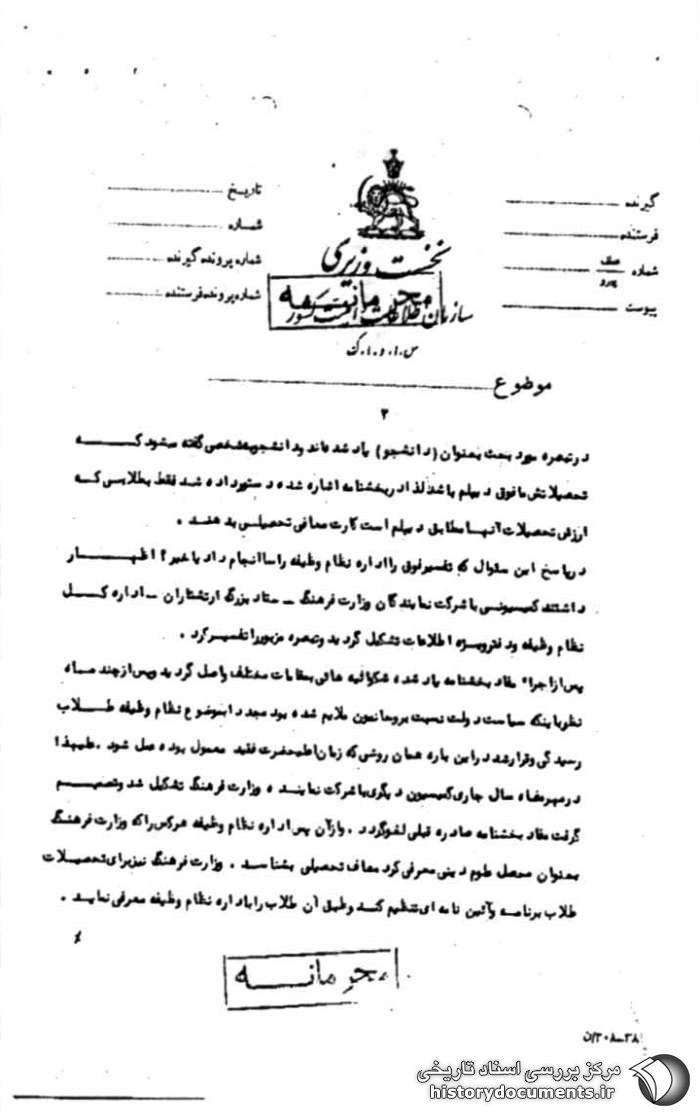 گیرنده
فرستنده
شماره
پیوست
تاریخ
شماره
شماره پرونده گیرنده
شماره پرونده فرستنده
نخست وزیری
سازمان اطلاعات و امنیت کشور
محرمانه
س.ا.و.ا.ک
موضوع
۲
در تبصره مورد بحث بعنوان (دانشجو) یاد شده اند و دانشجو بشخصی گفته میشود که
تحصیلاتش مافوق دیپلم باشد لذا در بخشنامه اشاره شده دستور داده شد فقط بطلابی که
ارزش تحصیلات آنها مطابق دیپلم است کارت معافی تحصیلی بدهند .
در پاسخ این سئوال که تفسیر فوق را اداره نظام وظیفه راسا انجام داد یا خیر؟ اظهار
داشتند کمیسیونی با شرکت نمایندگان وزارت فرهنگ ـ ستاد بزرگ ارتشتاران ـ اداره کل
نظام وظیفه و دفتر ویژه اطلاعات تشکیل گردید و تبصره مزبور را تفسیر کرد .
پس از اجراء مفاد بخشنامه یاد شده شکوائیه هائی بمقامات مختلف واصل گردید و پس از چند ماه
نظر باینکه سیاست دولت نسبت بروحانیون ملایم شده بود مجددا موضوع نظام وظیفه طلاب
رسیدگی و قرار شد در این باره همان روشی که زمان اعلیحضرت فقید معمول بوده عمل شود . علیهذا
در مهرماه سال جاری کمیسیون دیگری با شرکت نماینده وزارت فرهنگ تشکیل شد و تصمیم
گرفت مفاد بخشنامه صادره قبلی لغو گردد . و از آن پس اداره نظام وظیفه هر کس را که وزارت فرهنگ
بعنوان محصل علوم دینی معرفی کرد معاف تحصیلی بشناسد . وزارت فرهنگ نیز برای تحصیلات
طلاب برنامه و آئین نامه ای تنظیم کند و طبق آن طلاب را باداره نظام وظیفه معرفی نماید .
محرمانه
مرکز بررسی اسناد تاریخی
historydocuments.ir